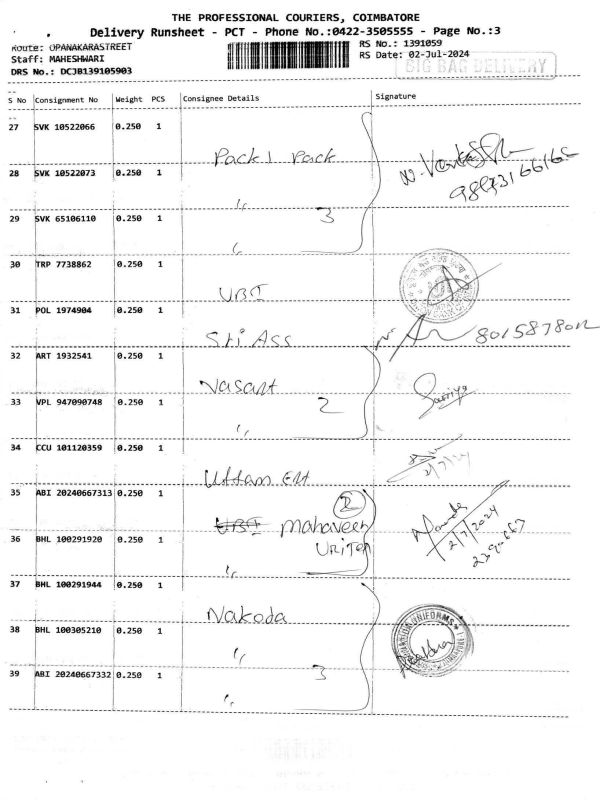 THE PROFESSIONAL COURIERS, COIMBATORE
Delivery Runsheet - PCT - Phone No.:0422-3505555 - Page No.:3
Route: OPANAKARASTREET
RS No.: 1391059
Staff: MAHESHWARI
RS Date: 02-Jul-2024
DRS No.: DCJB139105903
BIG BAG DELIVERY
S No Consignment No Weight PCS Consignee Details Signature
27 SVK 10522066 0.250 1
Pack 1 Pack
28 SVK 10522073 0.250 1
"
3
29 SVK 65106110 0.250 1
"
30 TRP 7738862 0.250 1
UBI
31 POL 1974904 0.250 1
Sri Ass
8015878012
32 ART 1932541 0.250 1
Vasant
2
33 VPL 947090748 0.250 1
"
34 CCU 101120359 0.250 1
Uttam Ent
2/7/24
35 ABI 20240667313 0.250 1
2
UBI Mahaveer
2/7/2024
36 BHL 100291920 0.250 1
"
37 BHL 100291944 0.250 1
Nakoda
38 BHL 100305210 0.250 1
"
39 ABI 20240667332 0.250 1
3
"